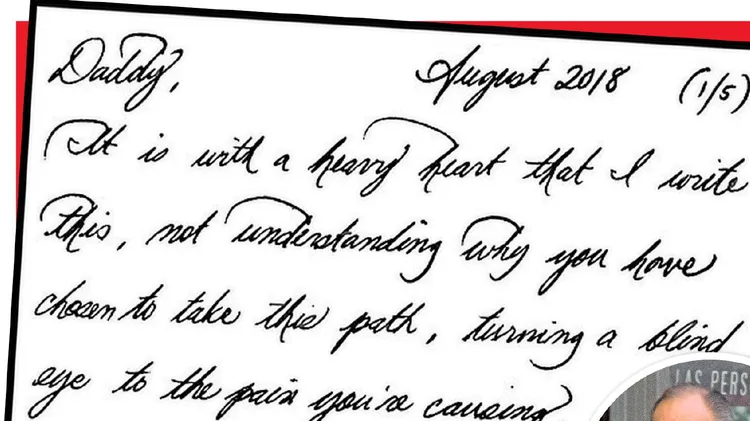 Daddy, August 2018 (1/5)
It is with a heavy heart that I write
this, not understanding why you have
chosen to take this path, turning a blind
eye to the pain you're causing
LAS PERS